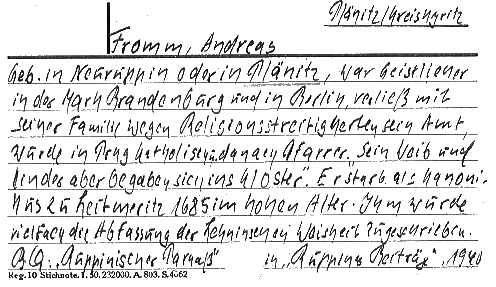 Plänitz/Kreis Kyritz
Fromm, Andreas
geb. in Neuruppin oder in Plänitz, war Geistlicher
in der Mark Brandenburg und in Berlin, verließ mit
seiner Familie wegen Religionsstreitigkeiten sein Amt,
wurde in Prag katholisch u. danach Pfarrer. Sein Weib und
Kinder aber begaben sich ins Kloster". Er starb als Kanoni-
kus zu Leitmeritz 1685 im hohen Alter. Ihm wurde
vielfach die Abfassung der Lehninschen Weisheit zugeschrieben.
"Ruppinischer Parnaß" in "Ruppins Beiträge", 1940
Reg. 10 Stichnote. T. 50. 232000. A. 803. S. 4662